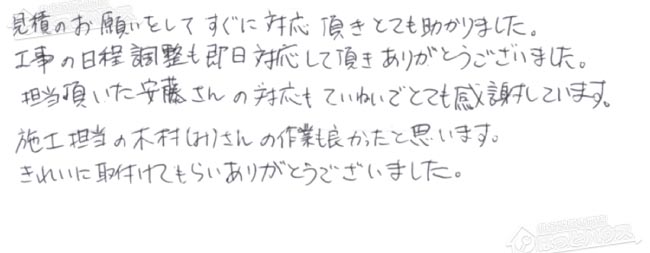 見積のお願いをしてすぐに対応頂きとても助かりました。
工事の日程調整も即日対応して頂きありがとうございました。
担当頂いた安藤さんの対応もていねいでとても感謝しています。
施工担当の木村(み)さんの作業も良かったと思います。
きれいに取付けてもらいありがとうございました。